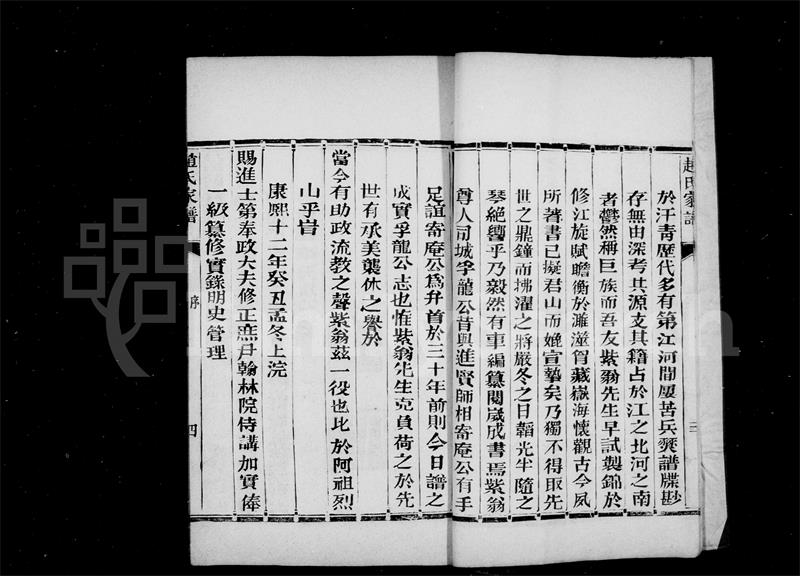 趙氏家譜
三
於汗青歷代多有第江河間屢苦兵燹譜牒尠
存無由深考其源支其籍占於江之北河之南
者鬱然稱巨族而吾友紫翁先生早試製錦於
修江旋賦瞻衡於濉灊胷藏嶽海懷觀古今夙
所著書已擬君山而娩宣摯矣乃獨不得取先
世之鼎鐘而拂濯之將嚴冬之日韜光半隨之
琴絕響乎乃毅然有事編纂閱歲成書焉紫翁
尊人司城孚龍公昔與進賢師相寄庵公有手
足誼寄庵公爲弁首於三十年前則今日譜之
成實孚龍公志也惟紫翁先生克負荷之於先
世有承美襲休之譽於
當今有助政流教之聲紫翁茲一役也比於阿祖烈
山乎旹
康熙十二年癸丑孟冬上浣
賜進士第奉政大夫修正庶尹翰林院侍講加實俸
一級纂修實錄明史管理
趙氏家譜
序
四